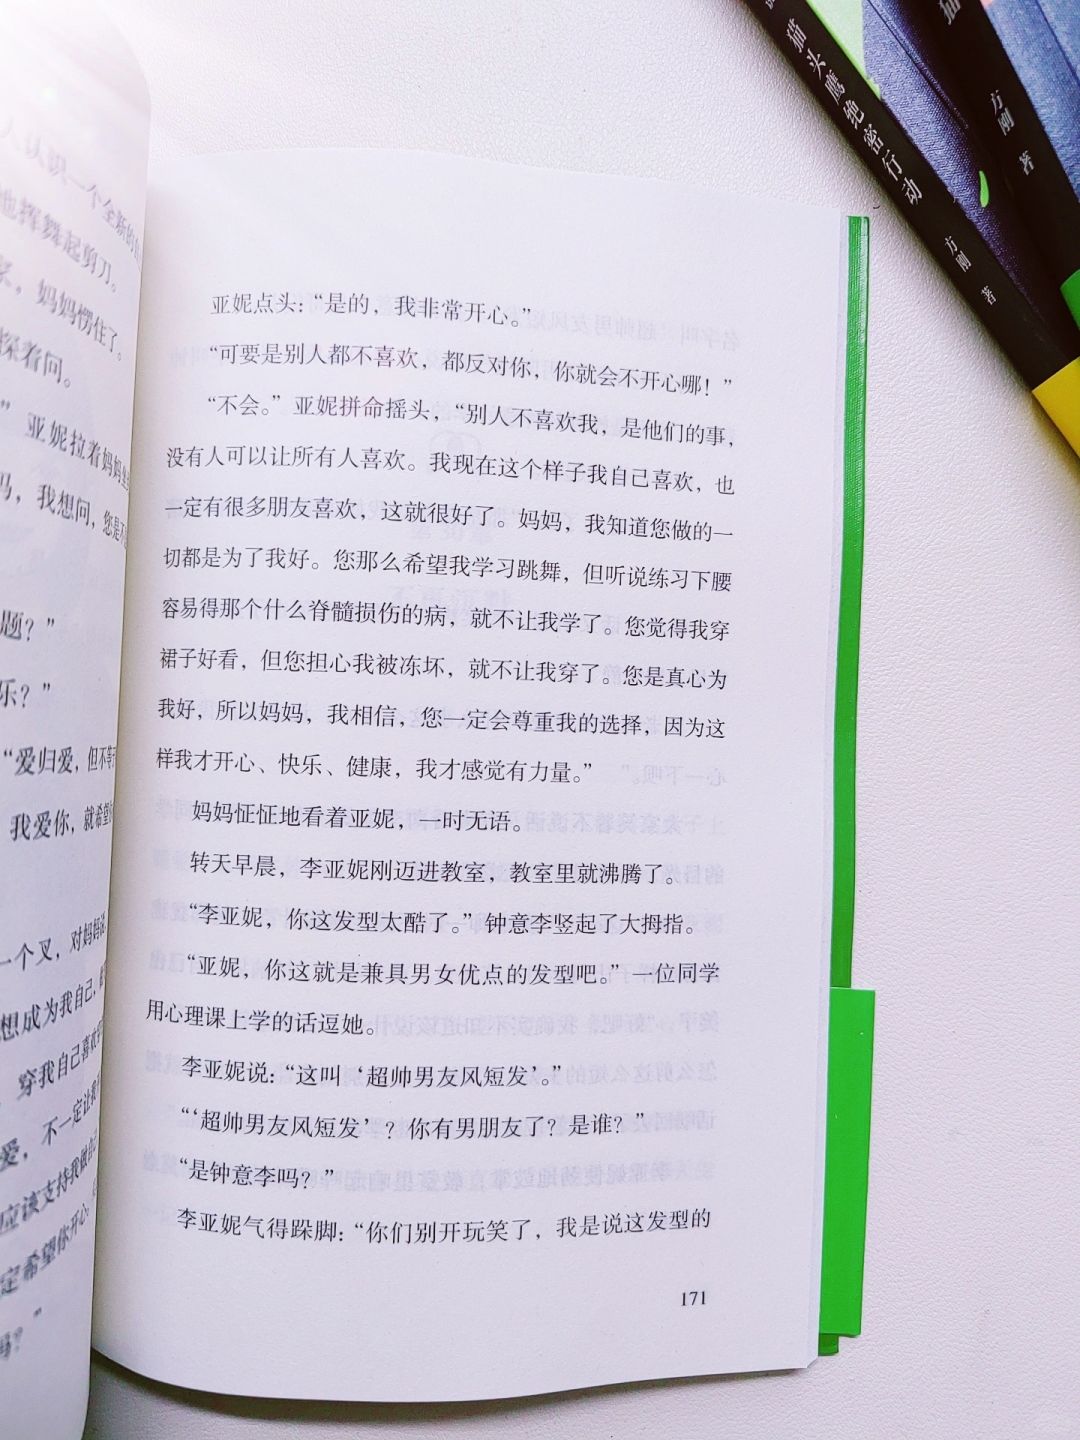 人认识一个全新的
他挥舞起剪刀。
妈妈愣住了。
探着问。
”亚妮拉着妈妈坐
我想问，您是不
题？”
乐？”
“爱归爱，但不等于
我爱你，就希望
一个叉，对妈妈说
想成为我自己，
穿我自己喜欢
爱，不一定让我
应该支持我做自己
定希望你开心
吗？”
亚妮点头：“是的，我非常开心。”
“可要是别人都不喜欢，都反对你，你就会不开心哪！”
“不会。”亚妮拼命摇头，“别人不喜欢我，是他们的事，
没有人可以让所有人喜欢。我现在这个样子我自己喜欢，也
一定有很多朋友喜欢，这就很好了。妈妈，我知道您做的一
切都是为了我好。您那么希望我学习跳舞，但听说练习下腰
容易得那个什么脊髓损伤的病，就不让我学了。您觉得我穿
裙子好看，但您担心我被冻坏，就不让我穿了。您是真心为
我好，所以妈妈，我相信，您一定会尊重我的选择，因为这
样我才开心、快乐、健康，我才感觉有力量。”
妈妈怔怔地看着亚妮，一时无语。
转天早晨，李亚妮刚迈进教室，教室里就沸腾了。
“李亚妮，你这发型太酷了。”钟意李竖起了大拇指。
“亚妮，你这就是兼具男女优点的发型吧。”一位同学
用心理课上学的话逗她。
李亚妮说：“这叫‘超帅男友风短发’。”
“‘超帅男友风短发’？你有男朋友了？是谁？”
“是钟意李吗？”
李亚妮气得跺脚：“你们别开玩笑了，我是说这发型的
171
猫头鹰绝密行动 方刚 著
猫
方刚 著